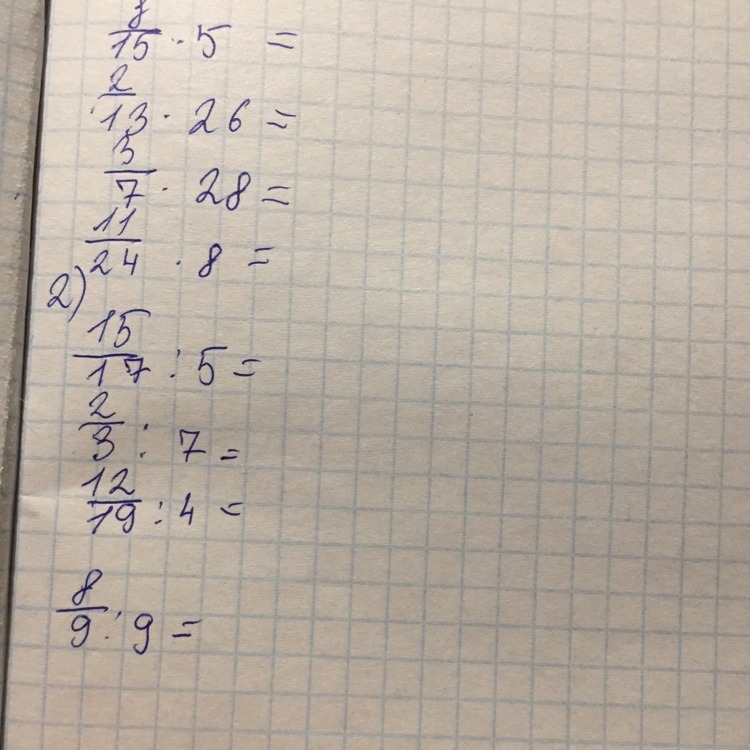 /15 · 5 =
2/13 · 26 =
3/7 · 28 =
11/24 · 8 =
2)
15/17 : 5 =
2/3 : 7 =
12/19 : 4 =
8/9 : 9 =